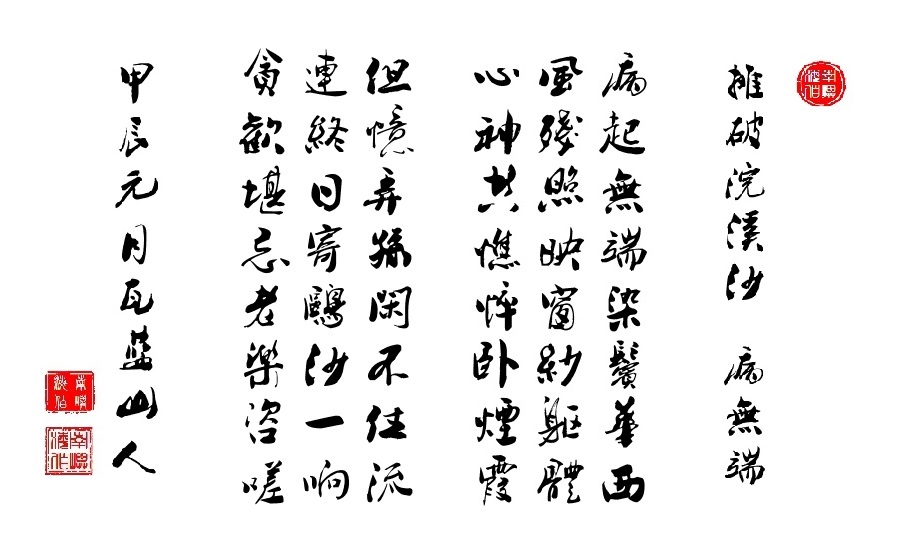 摊破浣溪沙 病無端
病起無端染鬢華西
風殘照映窗紗軀體
心神共憔悴卧煙霞
但憶弄孫閑不住流
連終日寄鷗沙一响
貪歡堪忘老樂咨嗟
甲辰元月瓦藍山人